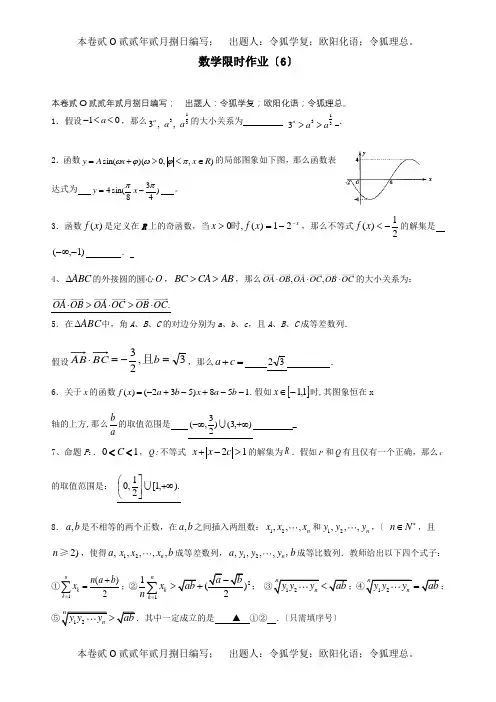 本卷贰O贰贰年贰月捌日编写； 出题人：令狐学复；欧阳化语；令狐理总。
数学限时作业〔6〕
本卷贰O贰贰年贰月捌日编写； 出题人：令狐学复；欧阳化语；令狐理总。
1．假设$-1<a<0$，那么$3^a, a^3, a^{\frac{1}{3}}$的大小关系为__________ $3^a > a^3 > a^{\frac{1}{3}}$_．
2．函数$y = A\sin(\omega n + \varphi)(\omega > 0, |\varphi| < \pi, x \in R)$的局部图象如下图，那么函数表
达式为 $y = 4\sin(\frac{\pi}{8}x - \frac{3\pi}{4})$ 。
3．函数$f(x)$是定义在R上的奇函数，当$x > 0$时,$f(x) = 1 - 2^{-x}$，那么不等式$f(x) < -\frac{1}{2}$的解集是
$(-\infty, -1)$________ ．
4、$\Delta ABC$的外接圆的圆心$O$，$BC > CA > AB$，那么$OA \cdot OB, OA \cdot OC, OB \cdot OC$的大小关系为:
$OA \cdot OB > OA \cdot OC > OB \cdot OC$.
5．在$\Delta ABC$中，角A、B、C的对边分别为a、b、c，且A、B、C成等差数列．
假设$\overrightarrow{AB} \cdot \overrightarrow{BC} = -\frac{3}{2}$,且$b = \sqrt{3}$，那么$a + c =$ $2\sqrt{3}$ ．
6．关于x的函数$f(x) = (-2a + 3b - 5)x + 8a - 5b - 1$.假如$x \in [-1,1]$时,其图象恒在x
轴的上方,那么$\frac{b}{a}$的取值范围是 $(-\infty, \frac{3}{2}) \cup (3, +\infty)$ _
7、命题P：．$0 < C < 1$，Q:不等式 $x + |x - 2c| > 1$的解集为R．假如P和Q有且仅有一个正确，那么c
的取值范围是； $\left(0, \frac{1}{2}\right] \cup [1, +\infty)$.
8．$a, b$是不相等的两个正数，在$a, b$之间插入两组数：$x_1, x_2, \cdots, x_n$和$y_1, y_2, \cdots, y_n$，〔 $n \in N^*$，且
$n ≥ 2$)，使得$a, x_1, x_2, \cdots, x_n, b$成等差数列，$a, y_1, y_2, \cdots, y_n, b$成等比数列．教师给出以下四个式子:
①$\sum_{k=1}^{n} x_k = \frac{n(a+b)}{2}$；②$\frac{1}{n}\sum_{k=1}^{n} x_k > \sqrt{ab} + (\frac{\sqrt{a}-\sqrt{b}}{2})^2$； ③$\sqrt[n]{y_1 y_2 \cdots y_n} < \sqrt{ab}$；④$\sqrt[n]{y_1 y_2 \cdots y_n} = \sqrt{ab}$；
⑤$\sqrt[n]{y_1 y_2 \cdots y_n} > \sqrt{ab}$．其中一定成立的是 ▲ ①② ．〔只需填序号〕
本卷贰O贰贰年贰月捌日编写； 出题人：令狐学复；欧阳化语；令狐理总。